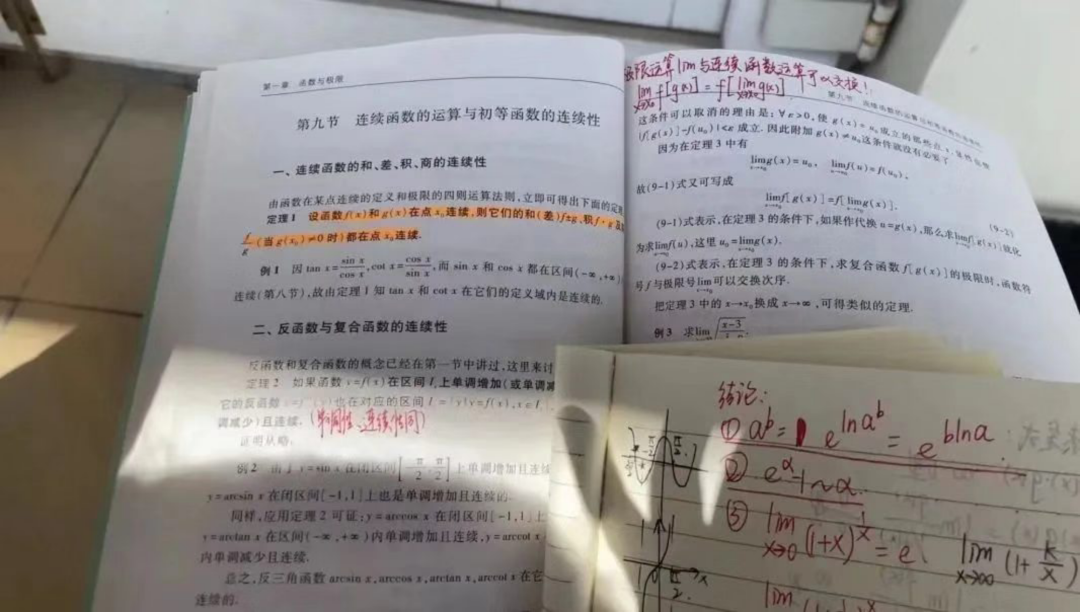 第一章 函数与极限
第九节 连续函数的运算与初等函数的连续性
一、连续函数的和、差、积、商的连续性
由函数在某点连续的定义和极限的四则运算法则,立即可得出下面的定
定理1 设函数f(x)和g(x)在点x₀连续,则它们的和(差)f±g、积f·g及
f/g(当g(x₀)≠0时)都在点x₀连续.
例1 因 tan x = sin x/cos x, cot x = cos x/sin x, 而 sin x 和 cos x 都在区间(-∞,+∞)
连续(第八节),故由定理1知 tan x 和 cot x 在它们的定义域内是连续的.
二、反函数与复合函数的连续性
反函数和复合函数的概念已经在第一节中讲过,这里来讨
定理2 如果函数y=f(x)在区间I上单调增加(或单调减
它的反函数 也在对应的区间 上单
调减少)且连续. (单调性、连续性同)
证明从略.
例2 由于y=sin x在闭区间[-π/2, π/2]上单调增加且连续
y=arcsin x在闭区间[-1,1]上也是单调增加且连续的.
同样,应用定理2可证:y=arccos x在闭区间[-1,1]上
y=arctan x在区间(-∞,+∞)内单调增加且连续,y=arccot x
内单调减少且连续.
总之,反三角函数arcsin x,arccos x,arctan x,arccot x在它
连续的.
极限运算lim与连续函数运算可以交换!
lim x→x₀ f[g(x)] = f[lim x→x₀ g(x)]
第九节 连续函数的运算与初等函数的连续性
这条件可以取消的理由是:∀ε>0,使g(x)=u₀成立的那些点x,显然也使
|f[g(x)]-f(u₀)|<ε成立.因此附加g(x)≠u₀这条件就没有必要了.
因为在定理3中有
lim x→x₀ g(x)=u₀, lim u→u₀ f(u)=f(u₀),
故(9-1)式又可写成
lim x→x₀ f[g(x)]=f[lim x→x₀ g(x)]. (9-2)
(9-1)式表示,在定理3的条件下,如果作代换u=g(x),那么求lim x→x₀ f[g(x)]就化
为求lim u→u₀ f(u),这里u₀=lim x→x₀ g(x).
(9-2)式表示,在定理3的条件下,求复合函数f[g(x)]的极限时,函数符
号f与极限号lim x→x₀可以交换次序.
把定理3中的x→x₀换成x→∞,可得类似的定理.
例3 求lim √(x-3
结论:
① aᵇ = e^(ln aᵇ) = e^(b ln a)
② e^α-1~α.
③ lim x→0 (1+x)^(1/x) = e. lim x→∞ (1+k/x)
lim